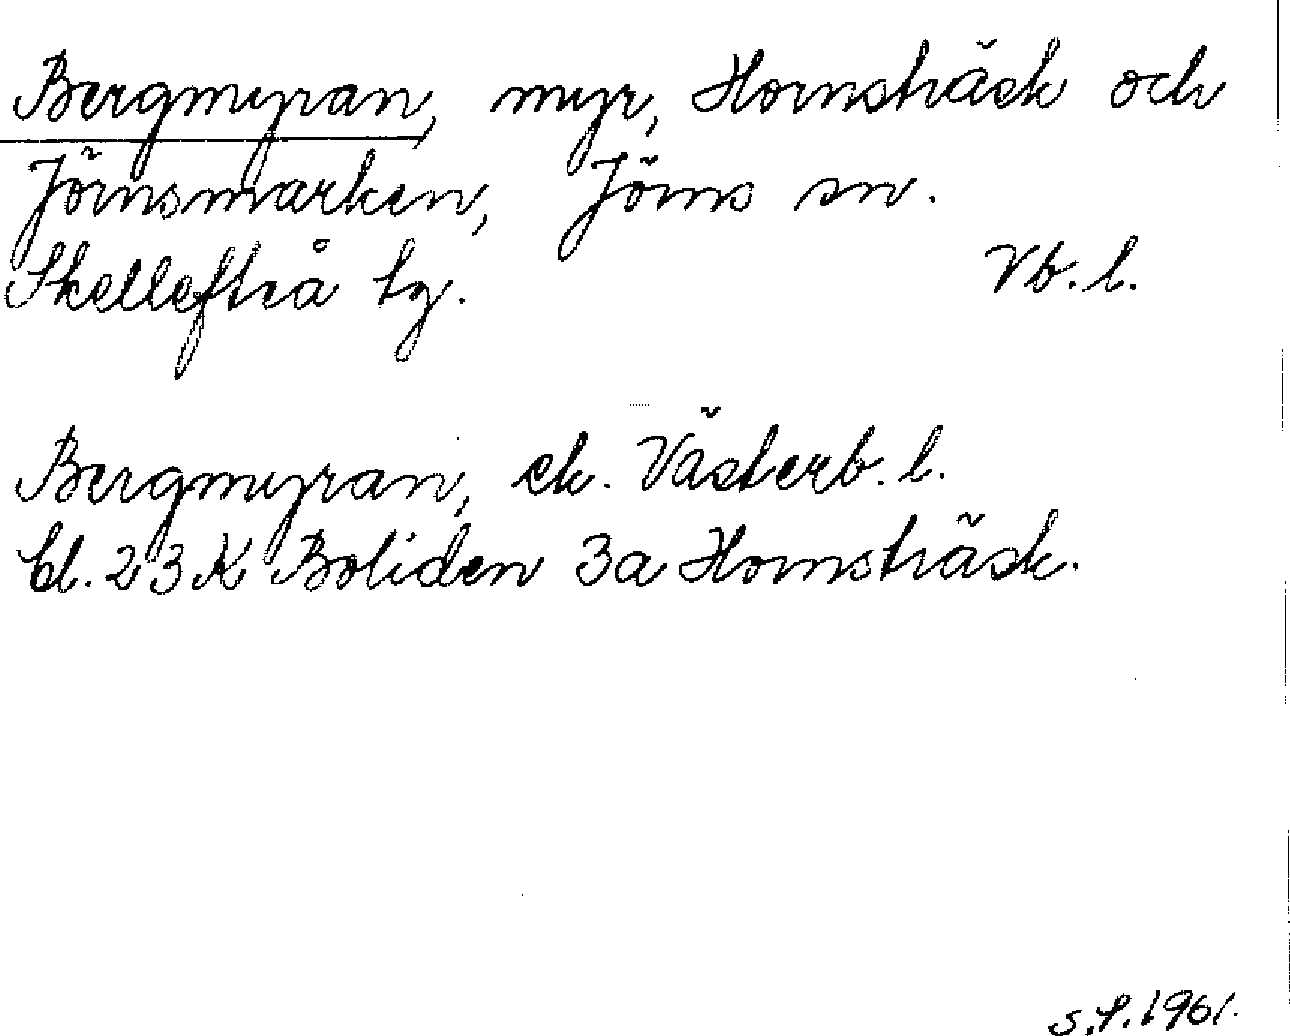 Bergmyran, myr, Hornsträsk och
Jörnsmarken, Jörns sn.
Skellefteå tg. Vb. l.
Bergmyran, ek. Västerb. l.
bl. 23 K Boliden 3a Hornsträsk.
S.P. 1961.